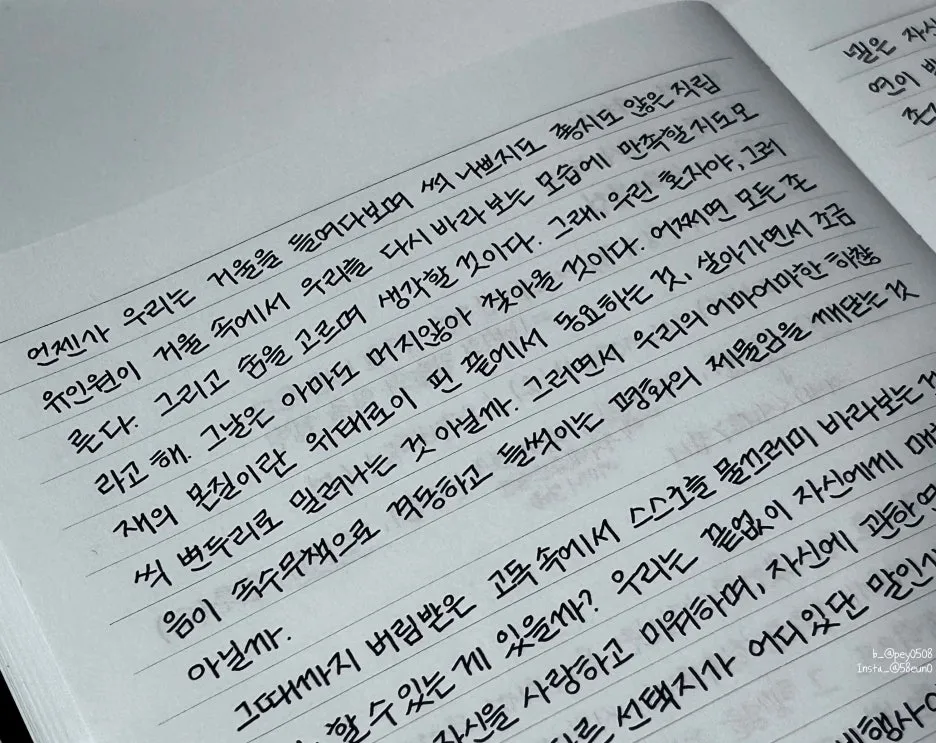 언젠가 우리는 거울을 들여다보며 썩 나쁘지도 좋지도 않은 직립
유인원이 거울 속에서 우리를 다시 바라보는 모습에 만족할지도 모
른다. 그리고 숨을 고르며 생각할 것이다. 그래, 우린 혼자야, 그러
라고 해. 그날은 아마도 머지않아 찾아올 것이다. 어쩌면 모든 존
재의 본질이란 위태로이 핀 끝에서 동요하는 것, 살아가면서 조금
씩 변두리로 밀려나는 것 아닐까. 그러면서 우리의 어마어마한 하찮
음이 속수무책으로 격동하고 들썩이는 평화의 제물임을 깨닫는 것
아닐까.
그때까지 버림받은 고독 속에서 스스로를 물끄러미 바라보는
할 수 있는 게 있을까? 우리는 끝없이 자신에게
자신을 사랑하고 미워하며, 자신에 관한
선택지가 어디있단
넬은
연이
b_@pey0508
Insta_@58eun0